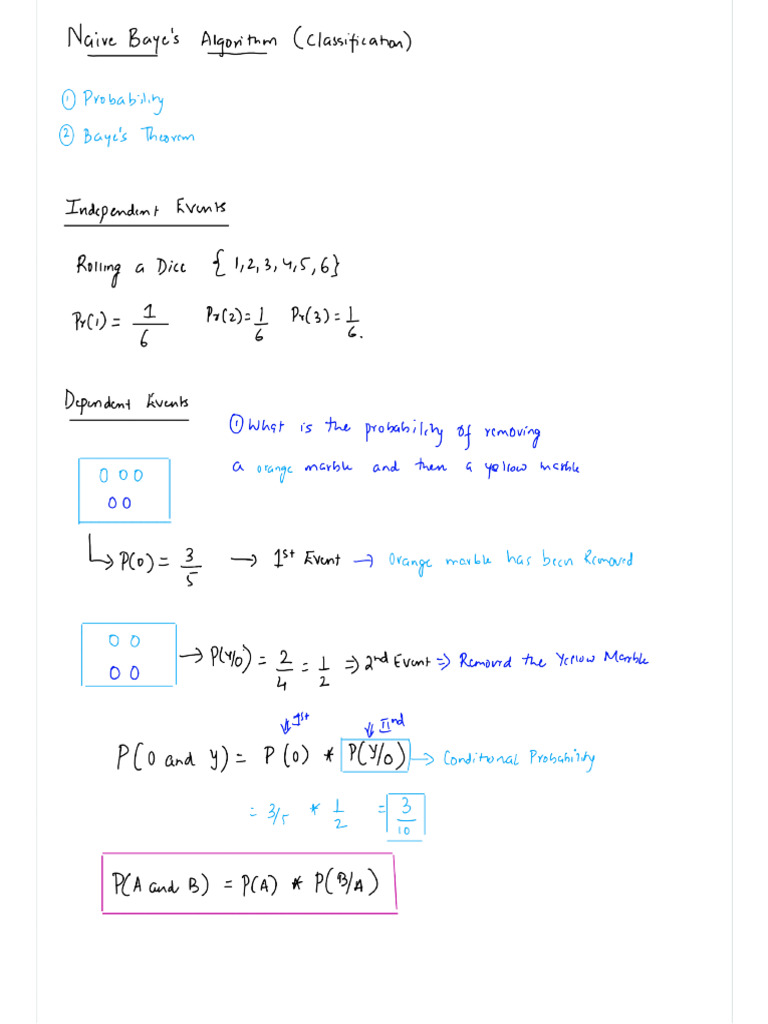 Naive Baye's Algorithm (Classification)
① Probability
② Baye's Theorem
Independent Events
Rolling a Dice {1,2,3,4,5,6}
Pr(1) = 1/6 Pr(2) = 1/6 Pr(3) = 1/6.
Dependent Events
① What is the probability of removing
a orange marble and then a yellow marble
P(O) = 3/5 → 1st Event → Orange marble has been Removed
→ P(Y/O) = 2/4 = 1/2 ⇒ 2nd Event ⇒ Removed the Yellow Marble
1st IInd
P(O and Y) = P(O) * P(Y/O) → Conditional Probability
= 3/5 * 1/2 = 3/10
P(A and B) = P(A) * P(B/A)